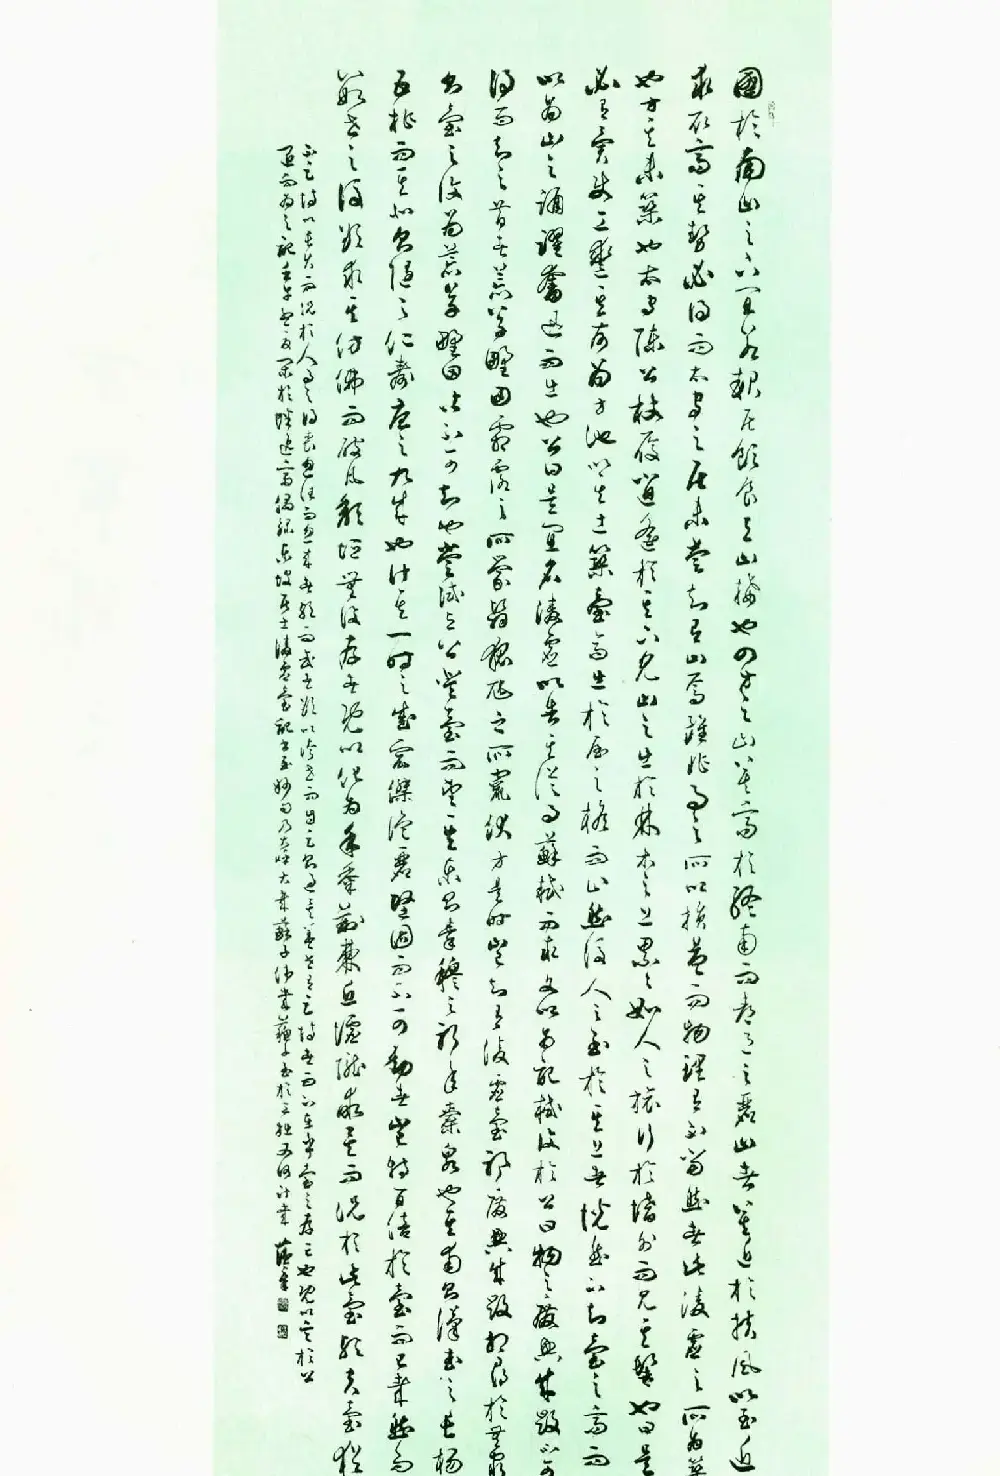 國於南山之下宜若起居飲食與山接也四方之山莫高於終南而都邑之麗山者莫近於扶風以至近
求最高其勢必得而太守之居未嘗知有山焉雖非事之所以損益而物理有不當然者此凌虛之所為築
也方其未築也太守陳公杖履逍遙於其下見山之出於林木之上累々如人之旅行於墻外而見其髻也曰是
必有異使工鑿其前為方池以其土築臺高出於屋之檐而止然後人之至於其上者恍然不知臺之高而
以為山之踊躍奮迅而出也公曰是宜名凌虛以告其從事蘇軾而求文以為記軾復於公曰物之廢興成毀不可
得而知也昔者荒草野田霜露之所蒙翳狐虺之所竄伏方是時豈知有凌虛臺耶廢興成毀相尋於無窮
則臺之復為荒草野田皆不可知也嘗試與公登臺而望其東則秦穆之祈年橐泉也其南則漢武之長楊
五柞而其北則隋之仁壽唐之九成也計其一時之盛宏傑詭麗堅固而不可動者豈特百倍於臺而已哉然而
數世之後欲求其彷彿而破瓦頹垣無復存者既以化為禾黍荊棘丘墟隴畝矣而況於此臺歟夫臺猶
不足恃以長久而況於人事之得喪忽往而忽來者歟而或者欲以夸世而自足則過矣蓋世有足恃者而不在乎臺之存亡也既以言於公
退而為之記 東坡居士凌虛臺記